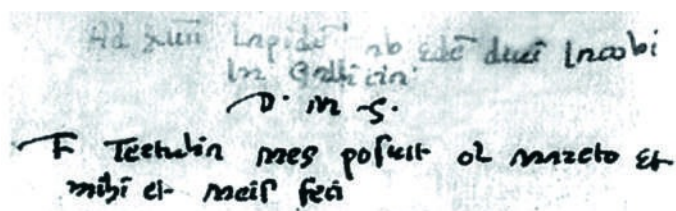 Ad xiiii Lapidē ab edē diui Iacobi
In Gallicia
D. M. S.
F Tertulia mes posuit ol mareto et
mihi et meis feci